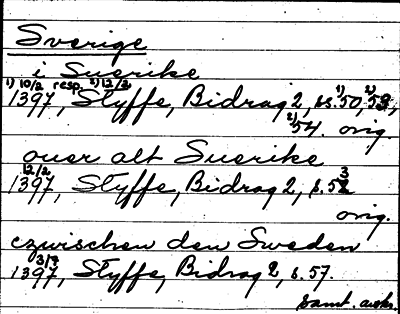 Sverige
i Suerike
1) 10/2 resp. 2) 12/2
1397, Styffe, Bidrag 2, ss. 1) 50, 2) 53,
2) 54. orig.
ouer alt Suerike
12/2
1397, Styffe, Bidrag 2, s. 53
orig.
czwischen den Sweden
3/7
1397, Styffe, Bidrag 2, s. 57.
samt. avskr.